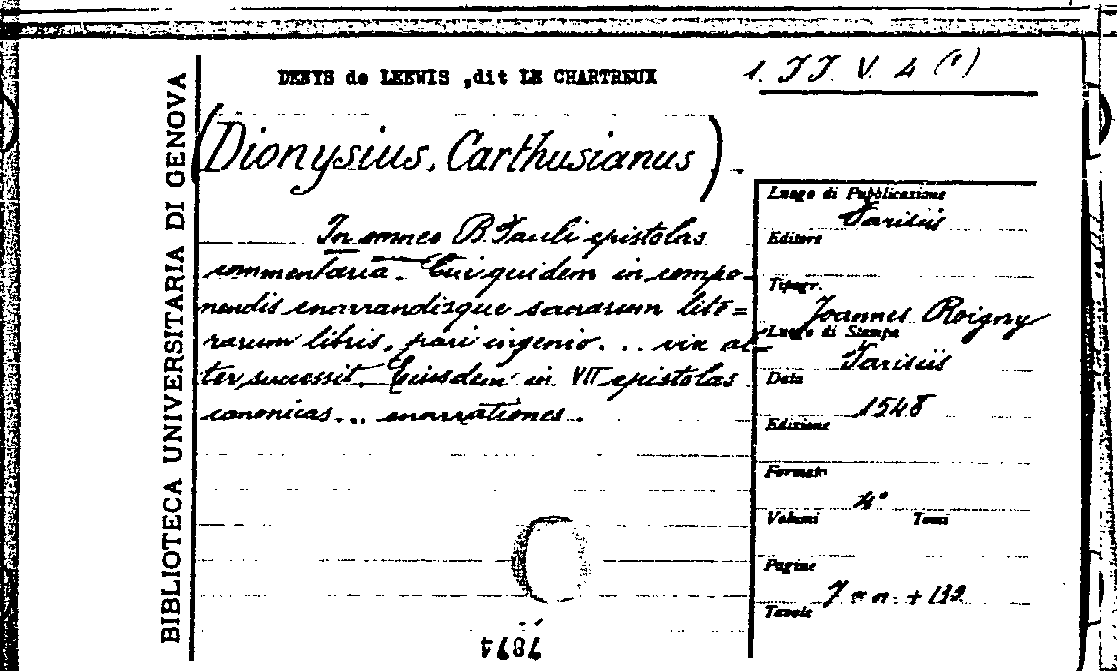 BIBLIOTECA UNIVERSITARIA DI GENOVA
DENYS de LEEWIS ,dit LE CHARTREUX
1. JJ. V. 4 (1)
(Dionysius, Carthusianus)
In omnes B. Pauli epistolas
commentaria. Cui quidem in compo-
nendis enarrandisque sacrarum lite=
rarum libris, pari ingenio... vix al-
ter successit. Eiusdem in VII epistolas
canonicas... enarrationes.
Luogo di Pubblicazione
Parisiis
Editore
Tipogr.
Joannes Roigny
Luogo di Stampa
Parisiis
Data
1548
Edizione
Formato
4°
Volumi Tomi
Pagine
7 n n. + 132
Tavole
7874